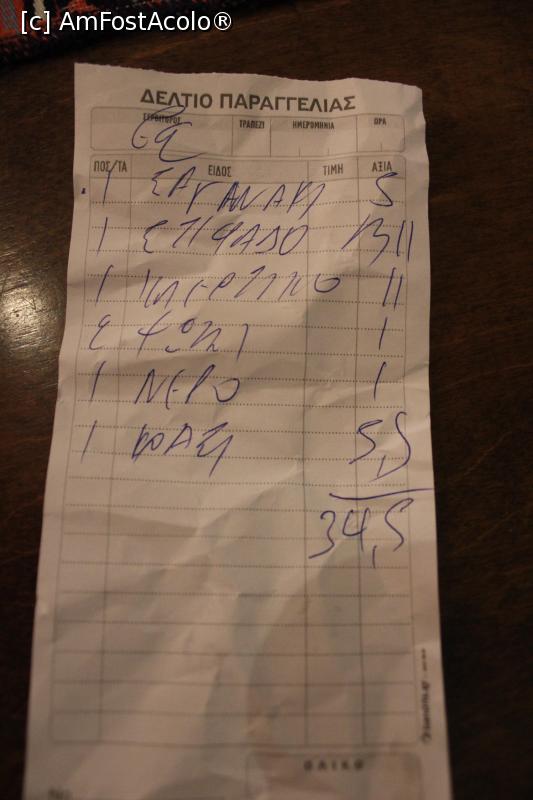 [c] AmFostAcolo®
ΔΕΛΤΙΟ ΠΑΡΑΓΓΕΛΙΑΣ
ΣΕΡΒΙΤΟΡΟΣ ΤΡΑΠΕΖΙ ΗΜΕΡΟΜΗΝΙΑ ΩΡΑ
ΠΟΣ/ΤΑ ΕΙΔΟΣ ΤΙΜΗ ΑΞΙΑ
1 ΣΑΓΑΝΑΚΙ 5
1 ΣΤΙΦΑΔΟ 11
1 ΚΛΕΦΤΙΚΟ 11
2 ΨΩΜΙ 1
1 ΝΕΡΟ 1
1 ΚΡΑΣΙ 5,5
34,5
ΟΛΙΚΟ